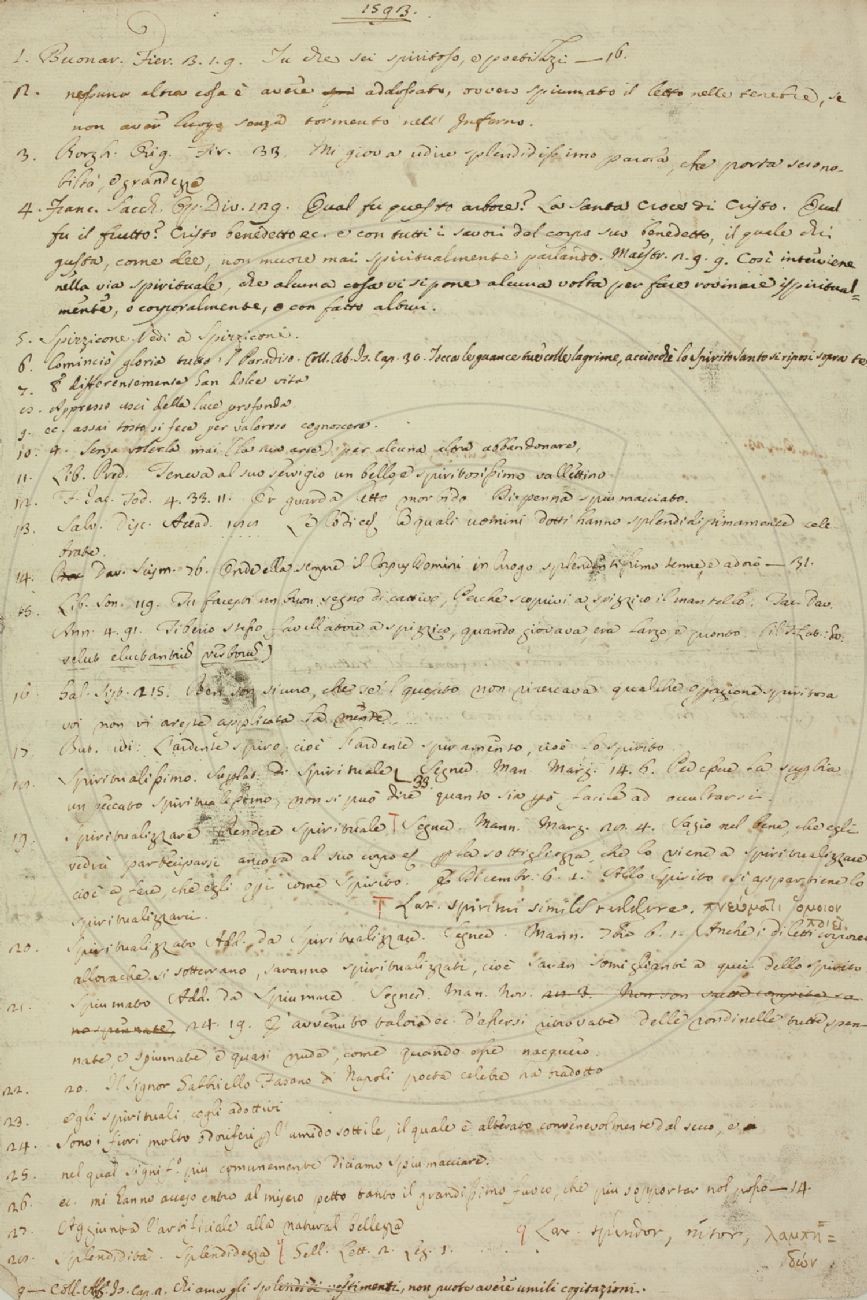 1593.
1. Buonar. Fier. 3. 1. 9. Tu che sei spiritoso, e poetizzi — 16.
2. nessuna altra cosa è avere addossato, ovvero spiumato il letto nelle tenebre, se
non aver luogo senza tormento nell' Inferno.
3. Borgh. Orig. Fir. 33. Mi giova udire splendidissimo parola, che porta seco no-
biltà, e grandezza
4. Franc. Sacch. Op. Div. 129. Qual fu questo arbore? La Santa Croce di Cristo. Qual
fu il frutto? Cristo benedetto ec. e con tutti i savori del corpo suo benedetto, il quale chi
gusta, come dee, non muore mai spiritualmente parlando. Maestr. 2. 9. 9. Così interviene
nella via spirituale, che alcuna cosa vi si pone alcuna volta per fare rovinare ispiritual=
mente, o corporalmente, e con fatto altrui.
5. Spizzicone Vedi a Spizziconi.
6. Cominciò gloria tutto 'l Paradiso. Coll. Ab. Is. Cap. 30. Tocca le guance tue colle lagrime, acciocchè lo Spirito Santo si riposi sopra te
7. E differentemente han dolce vita
8. Appresso uscì della luce profonda
9. ec. assai tosto si fece per valoroso cognoscere.
10. 4. Senza volerla mai (la sua arse) per alcuna altra abbandonare,
11. Lib. Pred. Teneva al suo servigio un bello e spiritosissimo vallettino.
12. F. Iac. Tod. 4. 33. 11. Or guarda letto morbido Di penna spiumacciato.
13. Salv. Disc. Accad. Le lodi ec. le quali uomini dotti hanno splendidissimamente cele-
brate.
14. Dav. Scism. 76. Onde ella sempre il Corpus Domini in luogo splendidissimo tenne, e adorò — 31.
15. Lib. Son. 119. Tu facesti un buon segno di cattivo, Perchè scoprivi a spizzico il mantello. Tac. Dav.
Ann. 4. 91. Tiberio stesso favellatore a spizzico, quando giovava, era largo, e pronto. (il T. Lat. ha:
velut eluctantium verborum)
16. Gal. Sist. 215. Ben son sicuro, che se 'l quesito non ricercava qualche cognizione spiritosa
voi non vi areste applicata la mente
17. But. ivi: L'ardente spiro, cioè l'ardente spiramento, cioè lo spirito.
18. Spiritualissimo. Superlat. di Spirituale Segner. Man. Marz. 14. 6. Ed essere la superbia
un peccato spiritualissimo, non si può dire quanto sia però facile ad occultarsi.
19. Spiritualizzare Rendere Spirituale Segner. Mann. Marz. 28. 4. Sazio nel bene, che egli
vedrà parteciparsi ancora al suo corpo ec. per la sottigliezza, che lo viene a spiritualizzare
cioè a fare, che egli operi come Spirito. E Dicembr. 6. 1. Allo Spirito si appartiene lo
spiritualizzarci.
Lat. spiritui similem reddere. πνεύματι ὅμοιον
ποιεῖν
20. Spiritualizzato Add. da Spiritualizzare. Segner. Mann. 6. 1. Anche i diletti corporei
allorachè si sotterrano, saranno spiritualizzati, cioè saran somiglianti a quei dello spirito
21. Spiumato Add. da Spiumare Segner. Man. Nov.
24. 19. E' avvenuto talora ec. d'essersi ritrovate delle rondinelle tutte spen-
nate e spiumate e quasi nude, come quando esse nacquero.
22. 20. Il Signor Gabbriello Fasano di Napoli poeta celebre ha tradotto
23. e gli spirituali, cogli adottivi
24. Sono i fiori molto odoriferi per l'umido sottile, il quale è alterato convenevolmente dal secco, e
25. nel qual signif.º più comunemente diciamo spiumacciare.
26. ec. mi hanno acceso entro al misero petto tanto il grandissimo fuoco, che più sopportar nol posso — 14.
27. Aggiunta l'artificiale alla natural bellezza
28. Splendidità. Splendidezza Sell. Lett. 2. Lez. 1. Lat. splendor, nitor, λαμπη=
δών.
9 — Coll. Ab. Is. Cap. 2. Chi ama gli splendidi vestimenti, non puote avere umili cogitazioni.